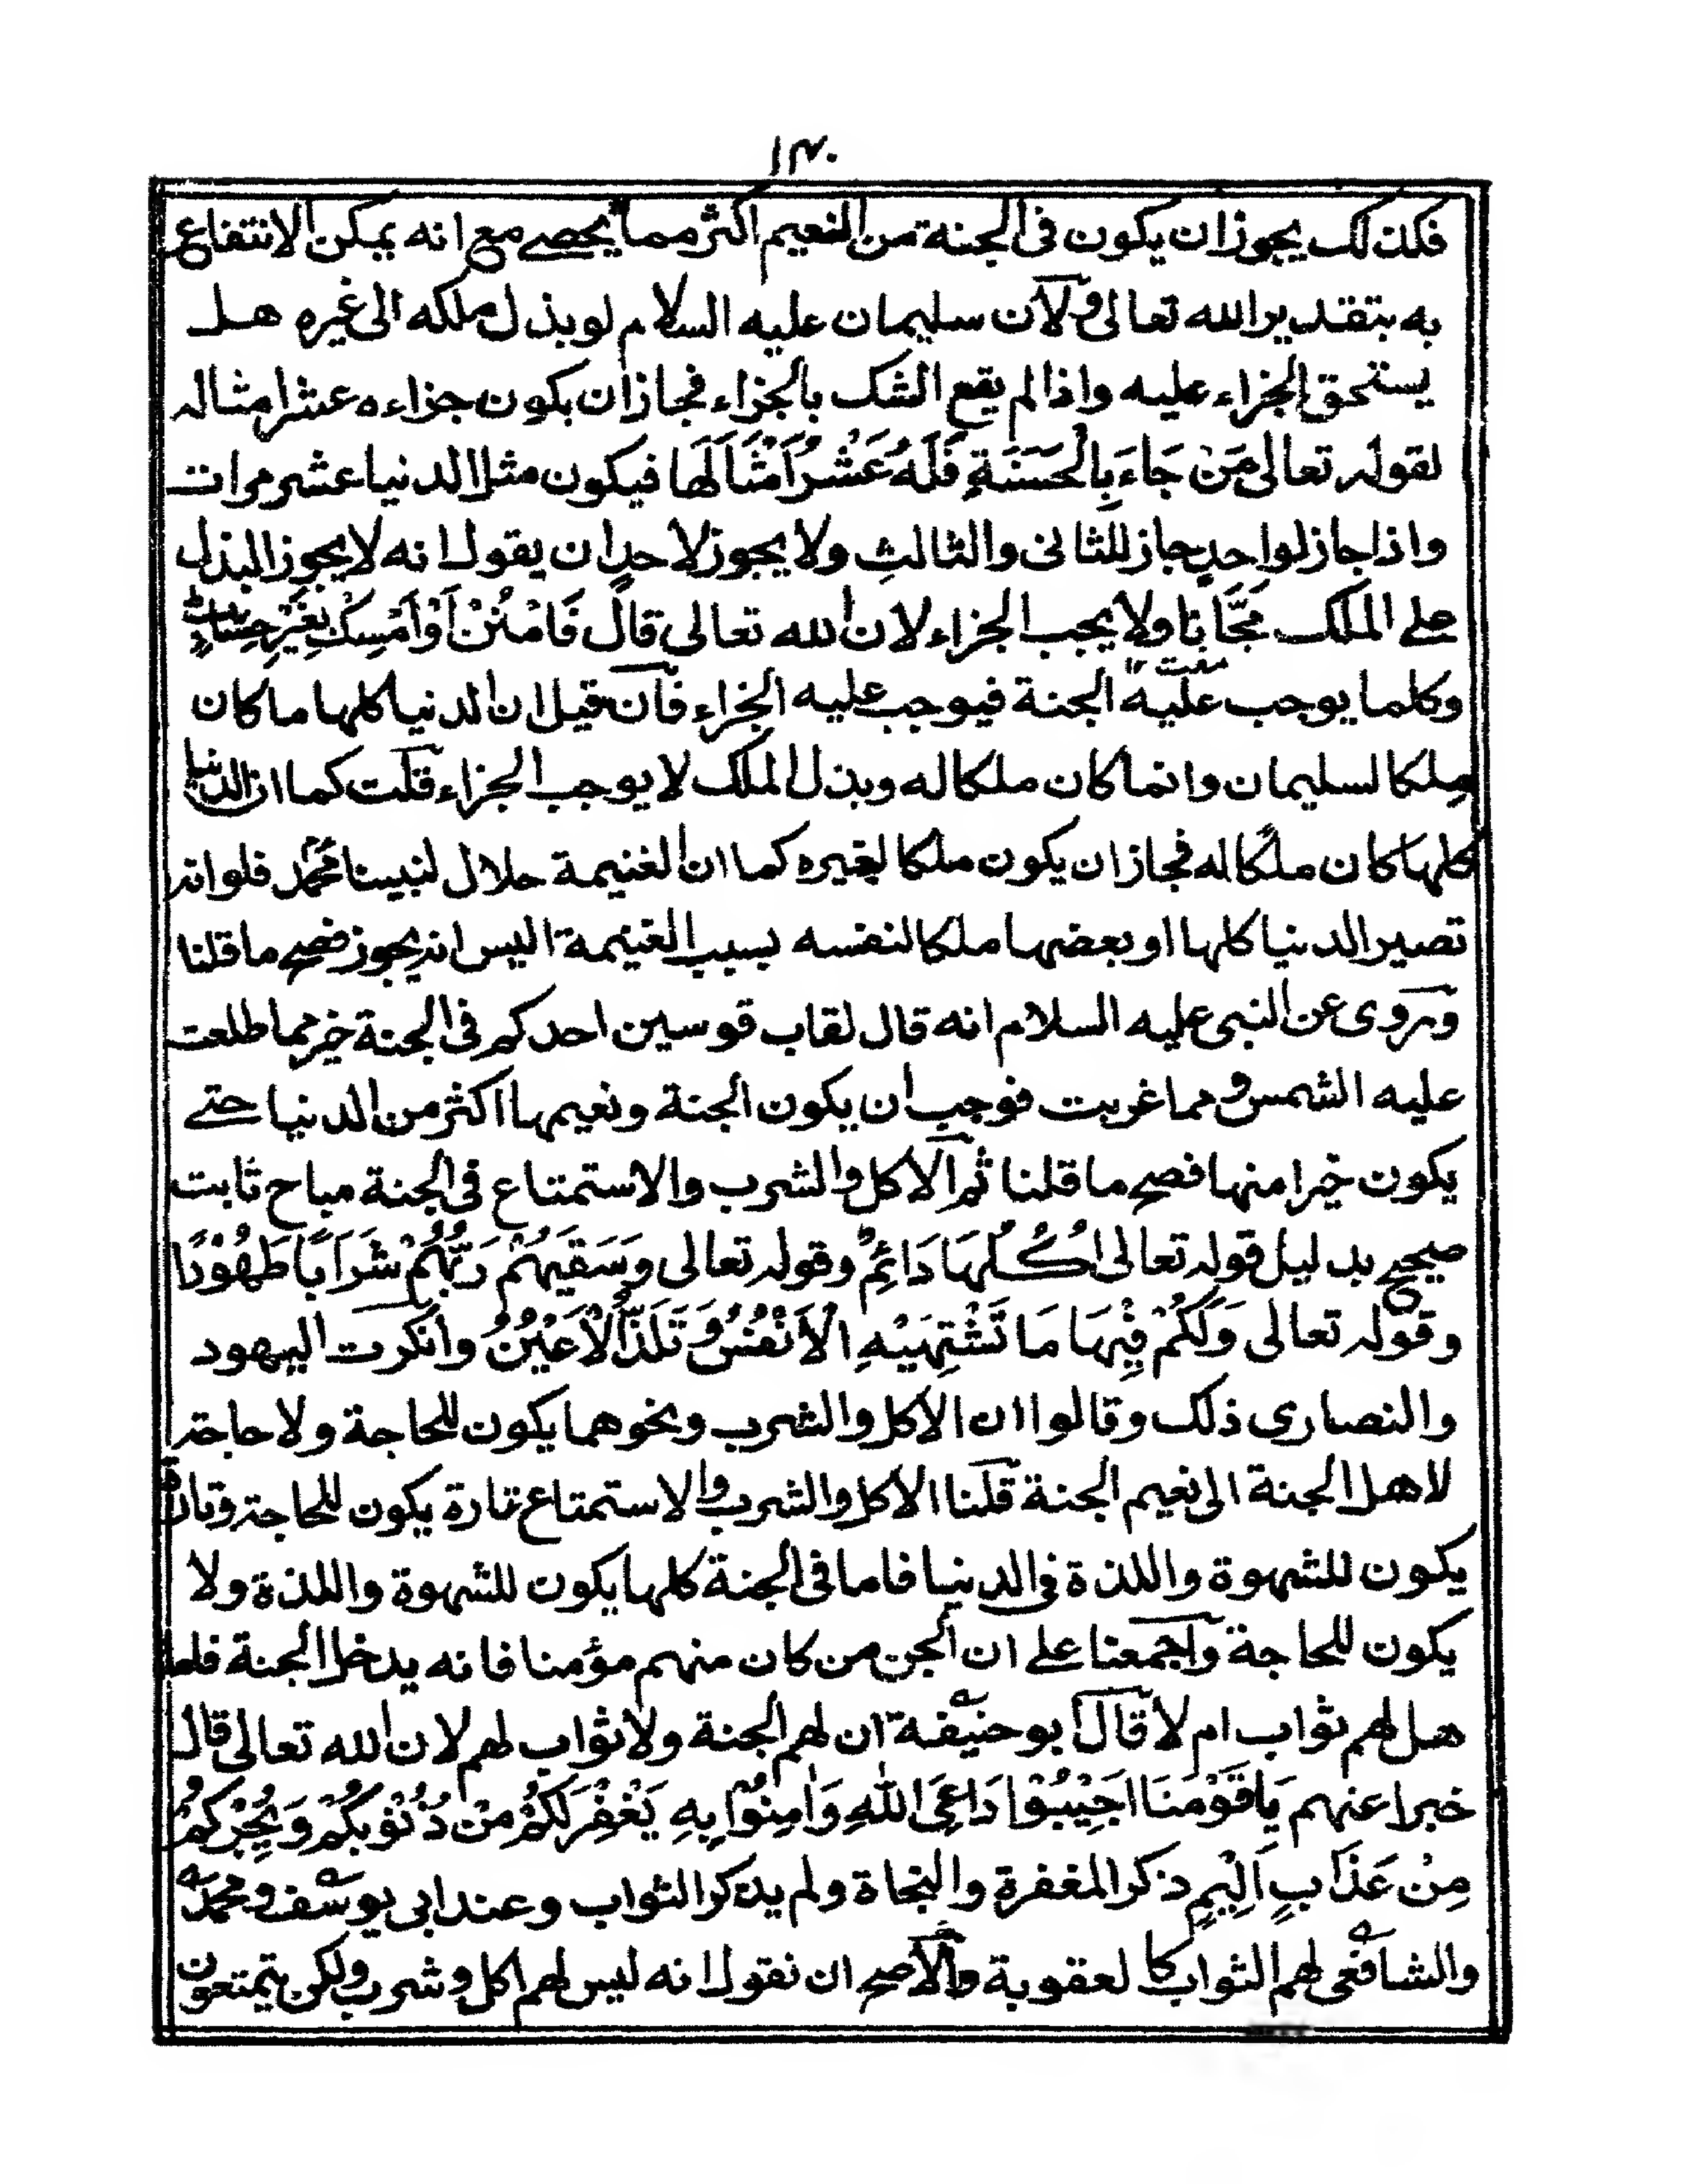 ١٣٠
فكذلك يجوز ان يكون فى الجنة من النعيم اكثر مما يحصے مع انه يمكن الانتفاع
به بتقدير الله تعالى ولان سليمان عليه السلام لو بذل ملكه الى غيره هل
يستحق الجزاء عليه واذا لم يقع الشك بالجزاء فجاز ان يكون جزاءه عشر امثاله
لقوله تعالى مَنْ جَاءَ بِالْحَسَنَةِ فَلَهُ عَشْرُ اَمْثَالَهَا فيكون مثل الدنيا عشر مرات
واذا جاز لواحدٍ جاز للثانى والثالثِ ولا يجوز لاحدٍ ان يقول انه لا يجوز البذل
علے الملك مَجَّانًا ولا يجب الجزاء لان الله تعالى قال فَامْنُنْ اَوْ اَمْسِكْ بِغَيْرِ حِسَابٍ
وكلما يوجب عليه الجنة فيوجب عليه الجزاء فان قيل ان الدنيا كلها ما كان
ملكا لسليمان وانما كان ملكا له وبذل الملك لا يوجب الجزاء قلت كما ان الدنيا
كلها كان ملكا له فجاز ان يكون ملكا لغيره كما ان الغنيمة حلال لنبينا محمد فلو انه
تصير الدنيا كلها او بعضها ملكا لنفسه بسبب الغنيمة اليس انه يجوز فصح ما قلنا
وروى عن النبى عليه السلام انه قال لقاب قوسين احدكم فى الجنة خير مما طلعت
عليه الشمس ومما غربت فوجب ان يكون الجنة ونعيمها اكثر من الدنيا حتے
يكون خيرا منها فصح ما قلنا ثم الاكل والشرب والاستمتاع فى الجنة مباح ثابت
صحيح بدليل قوله تعالى اُكُلُهَا دَائِمٌ وقوله تعالى وَسَقٰهُمْ رَبُّهُمْ شَرَابًا طَهُوْرًا
وقوله تعالى وَلَكُمْ فِيْهَا مَا تَشْتَهِيْهِ الْاَنْفُسُ وَتَلَذُّ الْاَعْيُنُ وانكرت اليهود
والنصارى ذلك وقالوا ان الاكل والشرب ونحوهما يكون للحاجة ولا حاجة
لاهل الجنة الى نعيم الجنة قلنا الاكل والشرب والاستمتاع تارة يكون للحاجة وتارة
يكون للشهوة واللذة فى الدنيا فاما فى الجنة كلها يكون للشهوة واللذة ولا
يكون للحاجة واجمعنا علے ان الجن من كان منهم مؤمنا فانه يدخل الجنة فلما
هل لهم ثواب ام لا قال ابو حنيفة ان لهم الجنة ولا ثواب لهم لان الله تعالى قال
خبرا عنهم يَا قَوْمَنَا اَجِيْبُوْا دَاعِيَ اللهِ وَاٰمِنُوْا بِهِ يَغْفِرْ لَكُمْ مِنْ ذُنُوْبِكُمْ وَيُجِرْكُمْ
مِنْ عَذَابٍ اَلِيْمٍ ذكر المغفرة والنجاة ولم يذكر الثواب وعند ابى يوسف ومحمد
والشافعى لهم الثواب كا لعقوبة والاصح ان نقول انه ليس لهم اكل وشرب ولكن يتمتعون